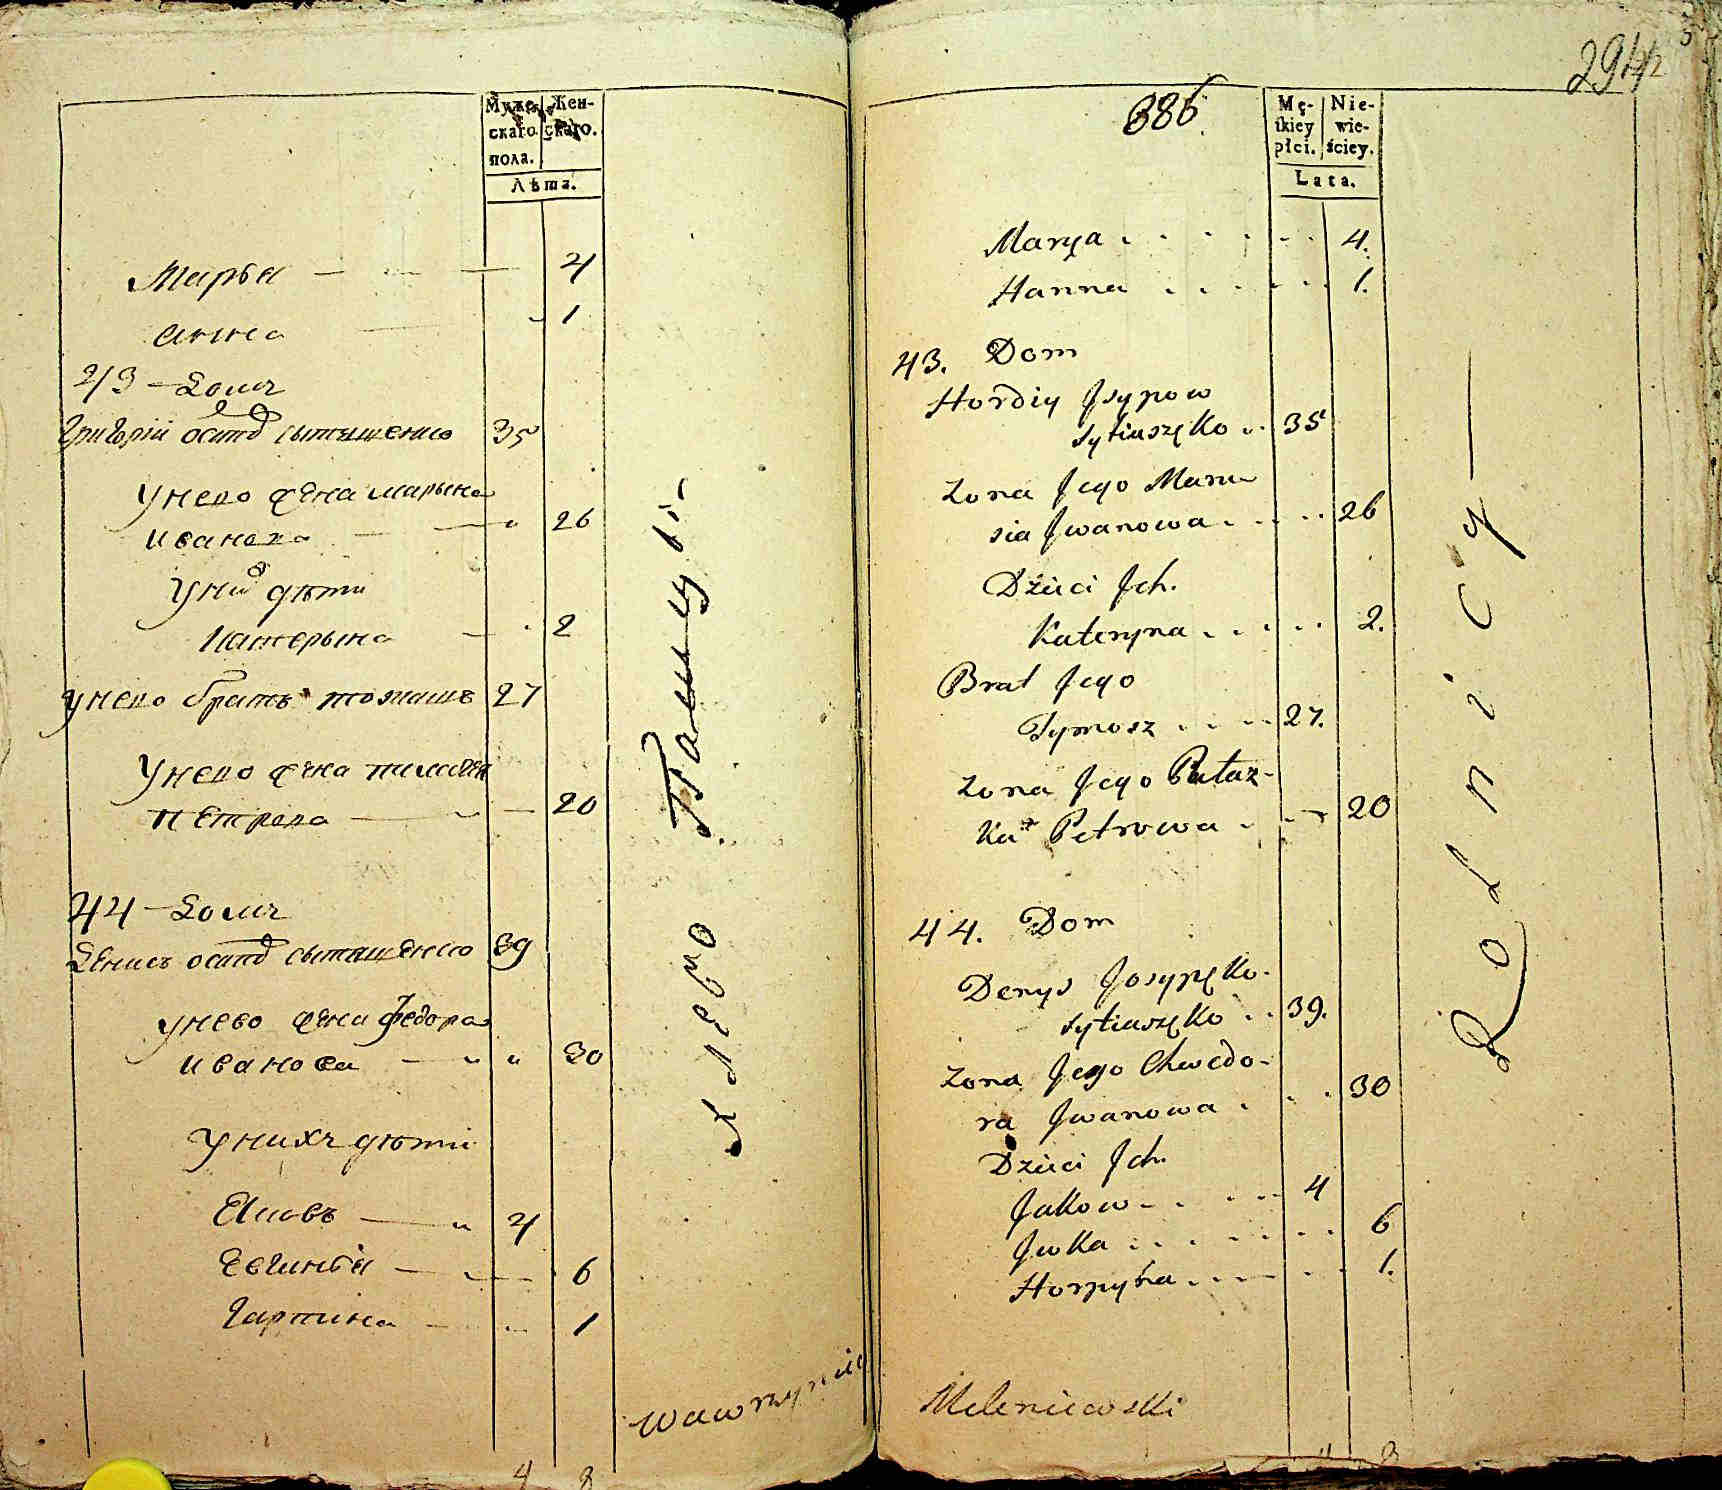 Муже-
скаго
пола.
Жен-
скаго.
Лѣта.
Марья 4
Анна 1
43 Домъ
Григорій Осипо Сытяшенко 35
У него жена Марына
Иванова 26
У них дѣти
Катерына 2
У него братъ Томашъ 27
У него жена
Петрова 20
44 Домъ
Денисъ Осипо Сыташенко 39
У нево жена Федора
Иванова 30
У нихъ дѣти
Яковъ 4
Евгинья 6
Гарпина 1
4 8
Хлѣбо Пашцы
Wawrzyniec
294
886
Mę-
skiey
płci.
Nie-
wie-
ściey.
Lata.
Marya 4.
Hanna 1.
43. Dom
Hordiy Jsypow
Sytiaszęko 35
Zona Jego Maru-
sia Jwanowa 26
Dzieci Jch.
Kateryna 2.
Brat Jego
Tymosz 27.
Zona Jego Pałaz-
ka Petrowa 20
44. Dom
Denys Josypęko-
Sytiaszęko 39.
Zona Jego Chwedo-
ra Jwanowa 30
Dzieci Jch.
Jakow 4
Jwka 6
Horpyna 1.
Rolnicy
Meleniewski
4 8